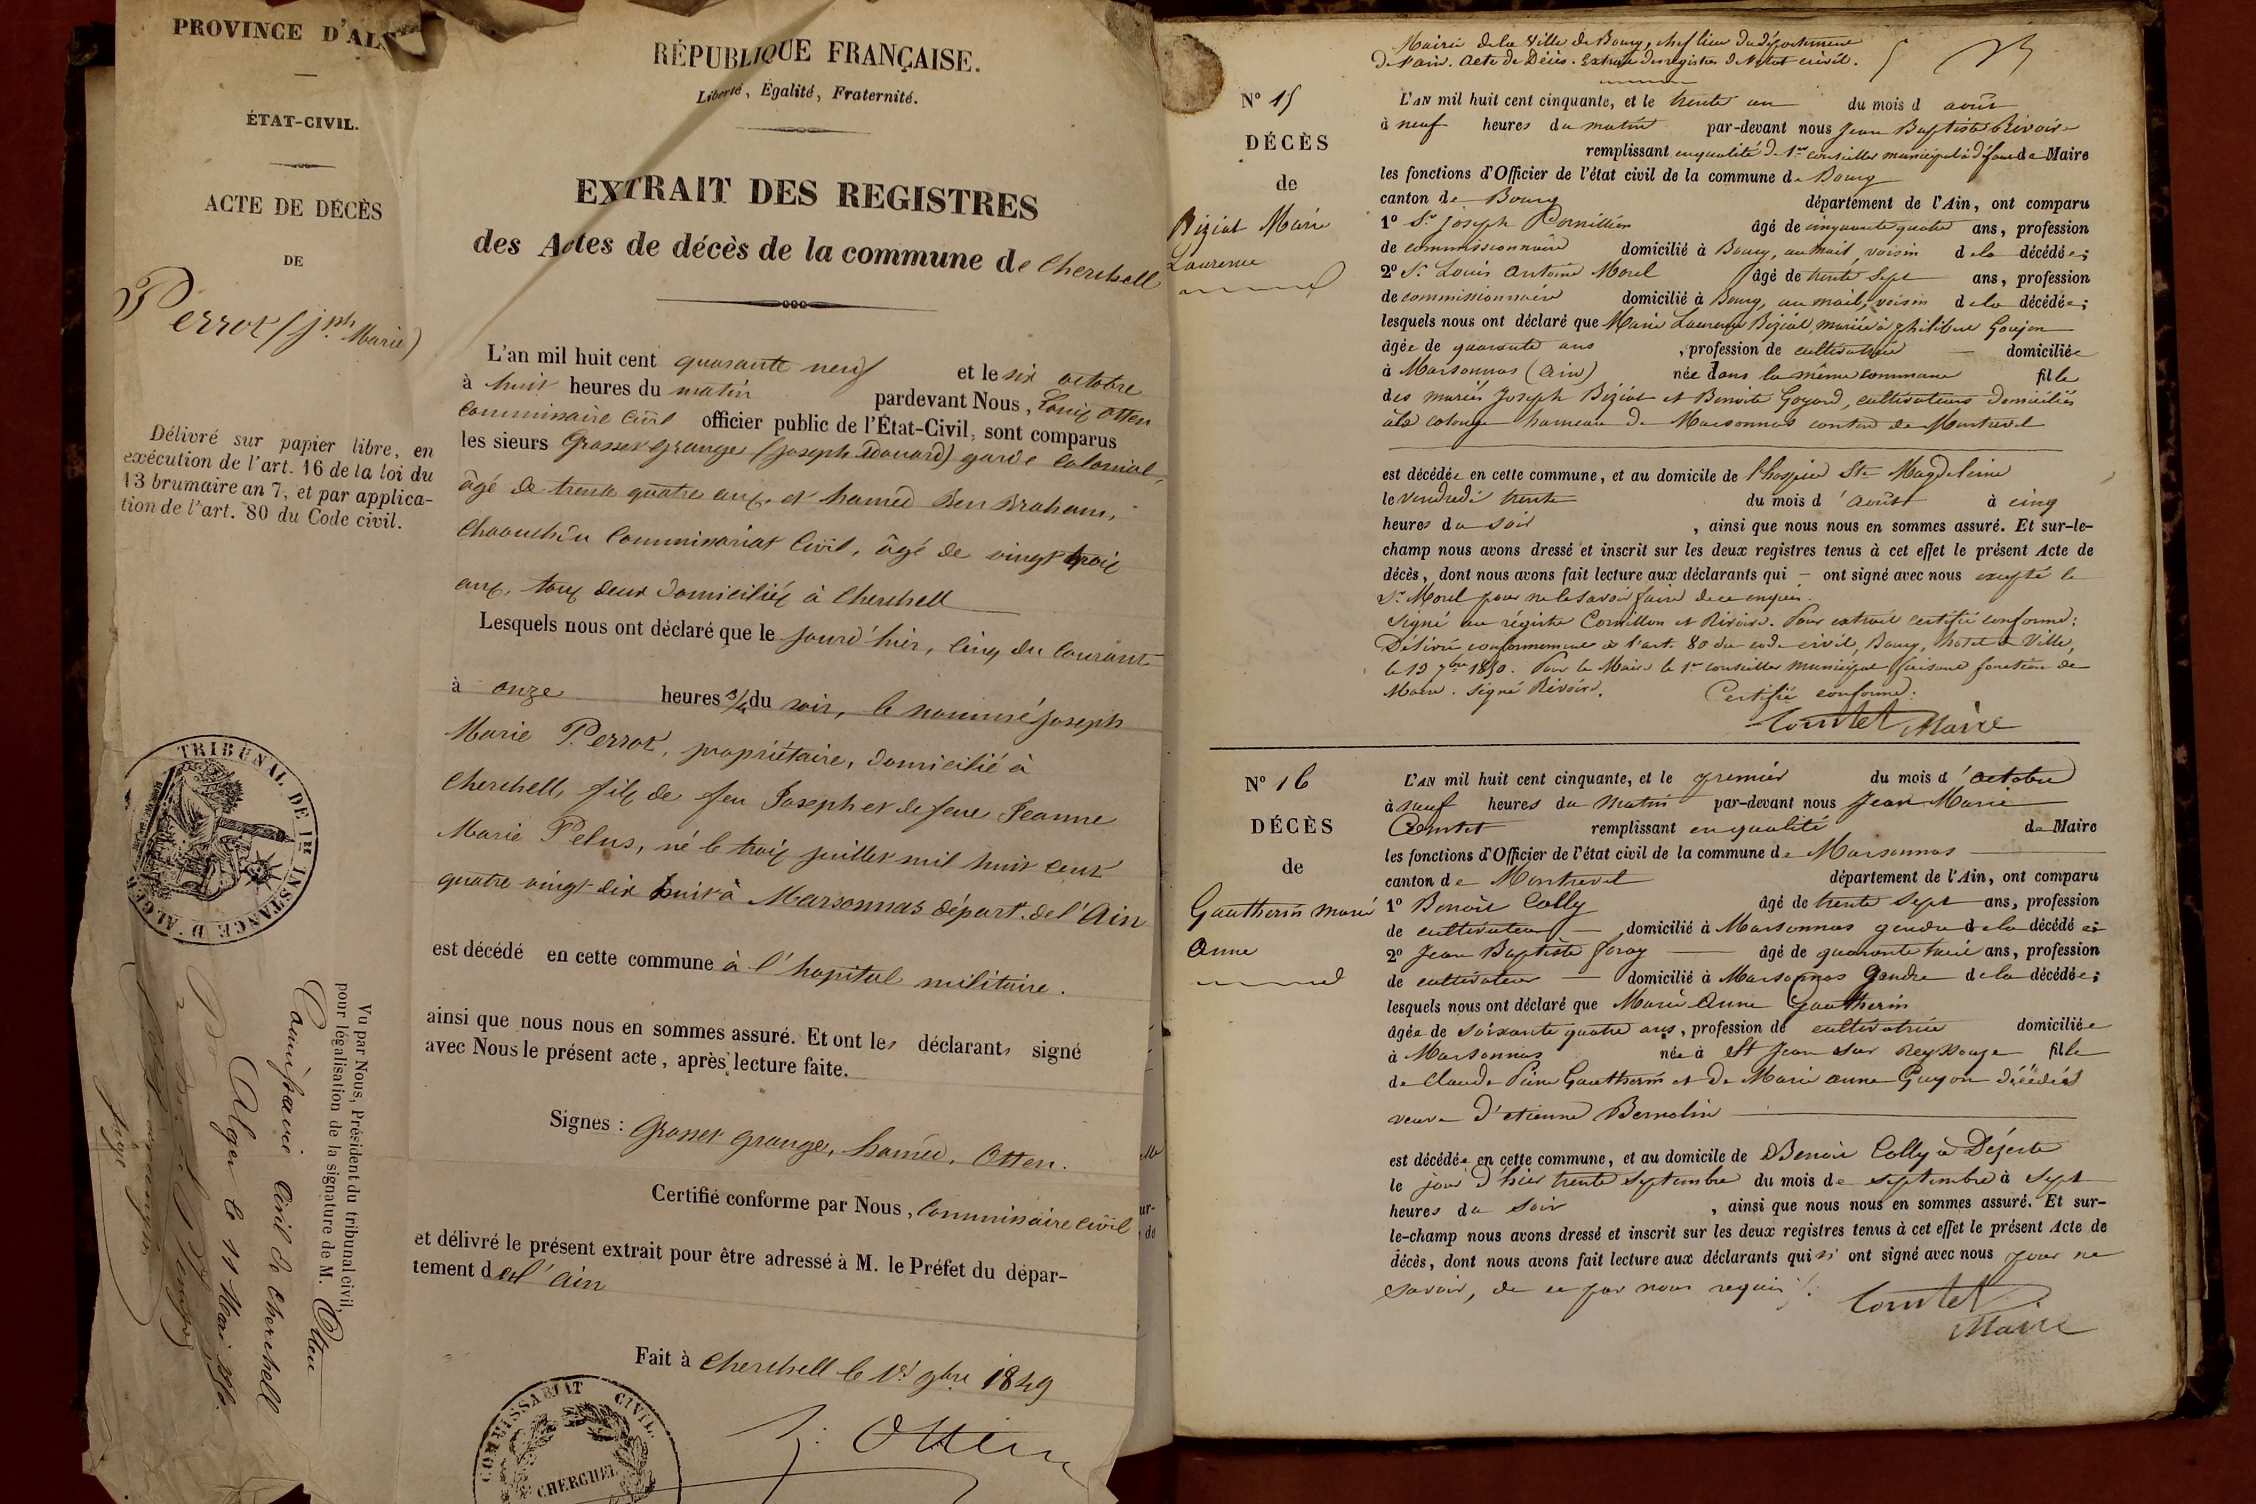 PROVINCE D'AL
ÉTAT-CIVIL.
ACTE DE DÉCÈS
DE
Perrot (jph Marie)
Délivré sur papier libre, en
exécution de l'art. 16 de la loi du
13 brumaire an 7, et par applica-
tion de l'art. 80 du Code civil.
TRIBUNAL DE 1RE INSTANCE D'ALGER
Vu par Nous, Président du tribunal civil,
pour légalisation de la signature de M. Otten
Commissaire Civil de Cherchell
Alger le 11 Mai 1850.
RÉPUBLIQUE FRANÇAISE.
Liberté, Égalité, Fraternité.
EXTRAIT DES REGISTRES
des Actes de décès de la commune de Cherchell
L'an mil huit cent quarante neuf et le six octobre
à huit heures du matin pardevant Nous, Louis Otten
Commissaire Civil officier public de l'État-Civil, sont comparus
les sieurs Grosset Grange (Joseph Edouard) garde Colonial,
âgé de trente quatre ans, et hamed Ben Braham,
Chaouch du Commissariat Civil, âgé de vingt trois
ans, tous deux domiciliés à Cherchell
Lesquels nous ont déclaré que le jourd'hier, cinq du courant
à onze heures 3/4 du soir, le nommé Joseph
Marie Perrot, propriétaire, domicilié à
Cherchell, fils de feu Joseph et de feue Jeanne
Marie Pelus, né le trois juillet mil huit cent
quatre vingt dix huit à Marsonnas départ. de l'Ain
est décédé en cette commune à l'hopital militaire.
ainsi que nous nous en sommes assuré. Et ont les déclarants signé
avec Nous le présent acte, après lecture faite.
Signés : Grosset Grange, hamed, Otten.
Certifié conforme par Nous, Commissaire Civil
et délivré le présent extrait pour être adressé à M. le Préfet du dépar-
tement de l'Ain
Fait à Cherchell le 1er 9bre 1849
COMMISSARIAT CIVIL
CHERCHEL
Otten
Mairie de la Ville de Bourg, chef lieu du département
de l'ain. Acte de Décès. Extrait des registres de l'état civil.
N° 15
DÉCÈS
de
Biziat Marie
Laurence
L'AN mil huit cent cinquante, et le trente un du mois d août
à neuf heures du matin par-devant nous Jean Baptiste Rivoire
remplissant en qualité de 1er conseiller municipal à défaut de Maire
les fonctions d'Officier de l'état civil de la commune de Bourg
canton de Bourg département de l'Ain, ont comparu
1° Sr Joseph Cornillon âgé de cinquante quatre ans, profession
de commissionnaire domicilié à Bourg, au mail, voisin de la décédée;
2° Sr Louis Antoine Morel âgé de trente sept ans, profession
de commissionnaire domicilié à Bourg, au mail, voisin de la décédée;
lesquels nous ont déclaré que Marie Laurence Biziat, mariée à philibert Goujon
âgée de quarante ans, profession de cultivatrice domiciliée
à Marsonnas (ain) née dans la même commune fille
des mariés Joseph Biziat et Benoite Goyard, cultivateurs domiciliés
à la hameau de Marsonnas canton de Montrevel
est décédée en cette commune, et au domicile de l'hospice Ste Magdeleine
le vendredi trente du mois d'août à cinq
heures du soir, ainsi que nous nous en sommes assuré. Et sur-le-
champ nous avons dressé et inscrit sur les deux registres tenus à cet effet le présent Acte de
décès, dont nous avons fait lecture aux déclarants qui - ont signé avec nous excepté le
Sr Morel pour ne le savoir faire de ce enquis.
Signé au régistre Cornillon et Rivoire. Pour extrait certifié conforme:
Délivré conformément à l'art. 80 du code civil, Bourg, hotel de Ville,
le 19 7bre 1850. Pour le Maire le 1er conseiller municipal faisant fonction de
Maire. Signé Rivoire. Certifié conforme:
Comtet Maire
N° 16
DÉCÈS
de
Gautherin marie
Anne
L'AN mil huit cent cinquante, et le premier du mois d'octobre
à neuf heures du matin par-devant nous Jean Marie
Comtet remplissant en qualité de Maire
les fonctions d'Officier de l'état civil de la commune de Marsonnas
canton de Montrevel département de l'Ain, ont comparu
1° Benoît Colly âgé de trente sept ans, profession
de cultivateur domicilié à Marsonnas gendre de la décédée;
2° Jean Baptiste Joray âgé de quarante trois ans, profession
de cultivateur domicilié à Marsonnas Gendre de la décédée;
lesquels nous ont déclaré que Marie Anne Gautherin
âgée de soixante quatre ans, profession de cultivatrice domiciliée
à Marsonnas née à St Jean sur Reyssouze fille
de Claude Pierre Gautherin et de Marie anne Guyon décédés
veuve d'etienne Bernolin
est décédée en cette commune, et au domicile de Benoit Colly à Dézerte
le jour d'hier trente Septembre du mois de septembre à sept
heures du soir, ainsi que nous nous en sommes assuré. Et sur-
le-champ nous avons dressé et inscrit sur les deux registres tenus à cet effet le présent Acte de
décès, dont nous avons fait lecture aux déclarants qui n' ont signé avec nous pour ne
savoir, de ce par nous requis.
Comtet
Maire